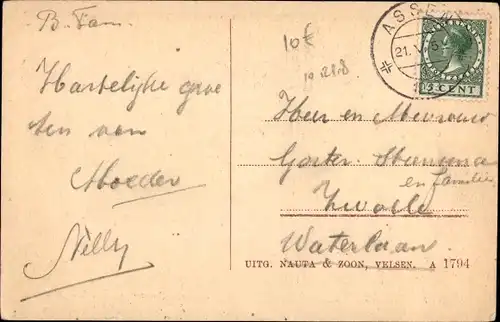 B. Fam.
Hartelijke groe
ten van
Moeder
Nelly
10 €
ASSEN
21. V
CENT
Heer en Mevrouw
Gorter
en familie
Zwolle
Waterlaan.
UITG. NAUTA & ZOON, VELSEN. A 1794